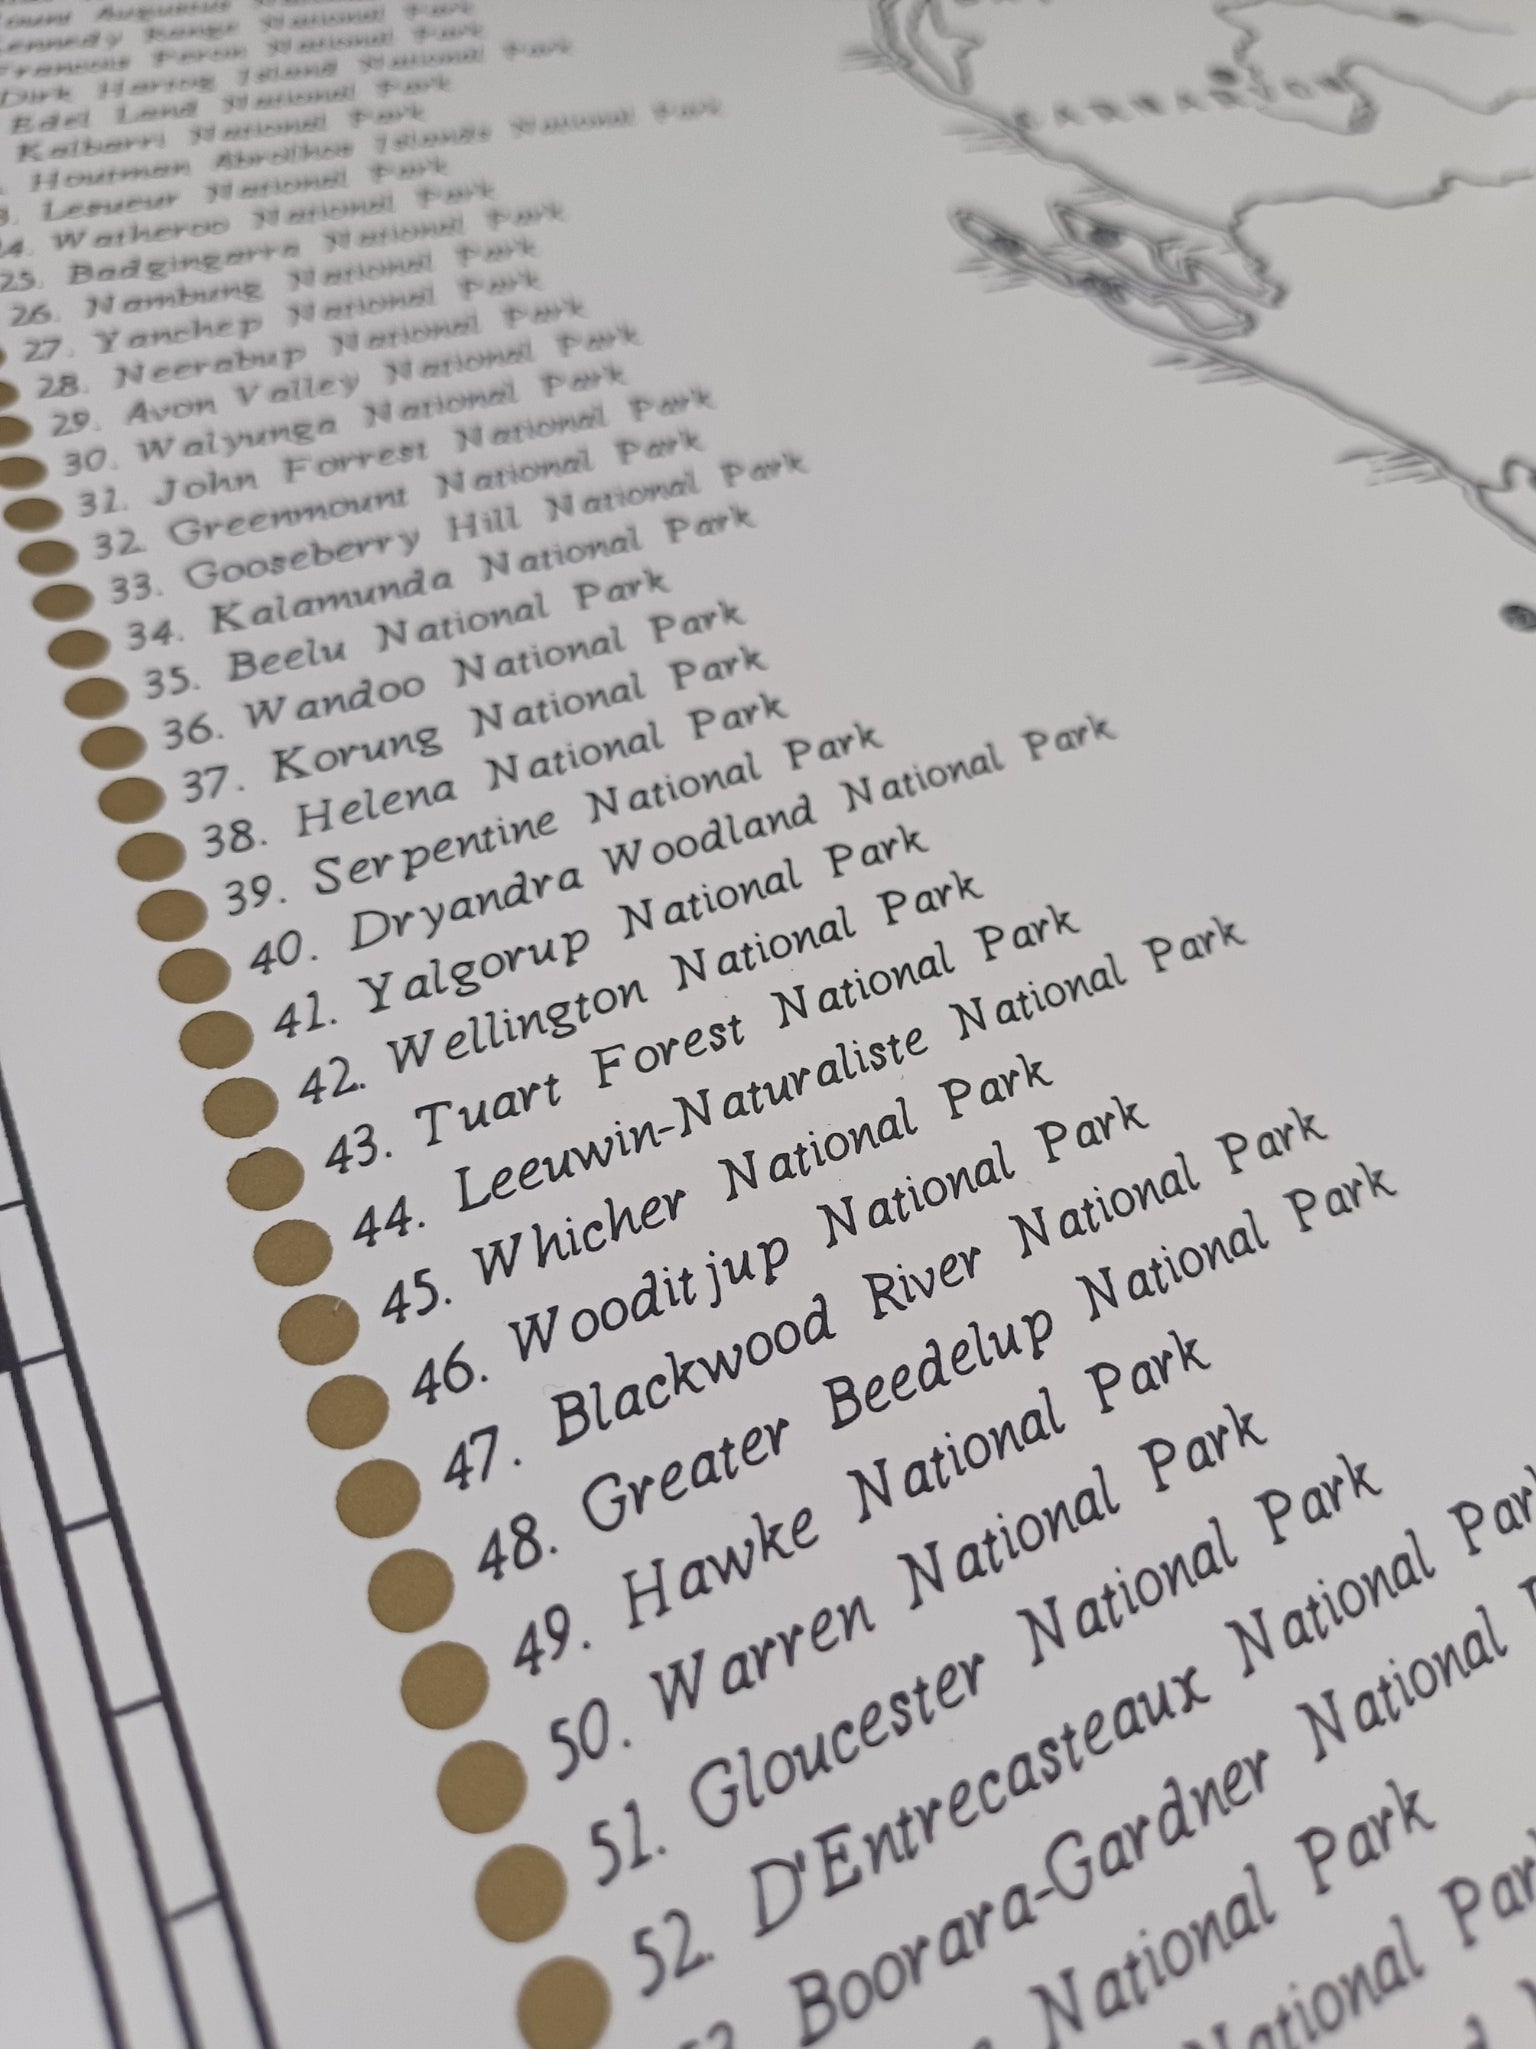 Augustus National Park
Kennedy Range National Park
Francois Peron National Park
Dirk Hartog Island National Park
Edel Land National Park
Kalbarri National Park
Houtman Abrolhos Islands National Park
3. Lesueur National Park
24. Watheroo National Park
25. Badgingarra National Park
26. Nambung National Park
27. Yanchep National Park
28. Neerabup National Park
29. Avon Valley National Park
30. Walyunga National Park
31. John Forrest National Park
32. Greenmount National Park
33. Gooseberry Hill National Park
34. Kalamunda National Park
35. Beelu National Park
36. Wandoo National Park
37. Korung National Park
38. Helena National Park
39. Serpentine National Park
40. Dryandra Woodland National Park
41. Yalgorup National Park
42. Wellington National Park
43. Tuart Forest National Park
44. Leeuwin-Naturaliste National Park
45. Whicher National Park
46. Wooditjup National Park
47. Blackwood River National Park
48. Greater Beedelup National Park
49. Hawke National Park
50. Warren National Park
51. Gloucester National Park
52. D'Entrecasteaux National Par
53. Boorara-Gardner National
National Park
National Par
CARNARVON